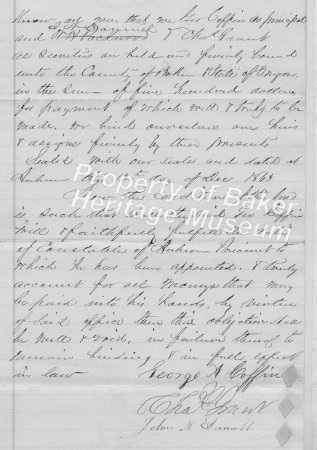 Know all men that we Geo Coffin as principal
and & Chas Grant
as sureties are held and firmly bound
unto the County of Baker State of Oregon
in the sum of five hundred dollars
for payment of which well & truly to be
made. we bind ourselves our heirs
& assigns firmly by these presents
Sealed with our seals and dated at
Auburn this day of Dec 1863
The Condition of the bond
is such that Coffin
will & faithfully fulfill the
of Constable of Auburn Precinct to
which he has been appointed. & truly
account for all moneys that may
be paid into his hands by virtue
of said office then this obligation shall
be null & void. in failure thereof to
remain binding & in full effect
in law George A Coffin
Chas Grant
John N
Property of Baker
Heritage Museum